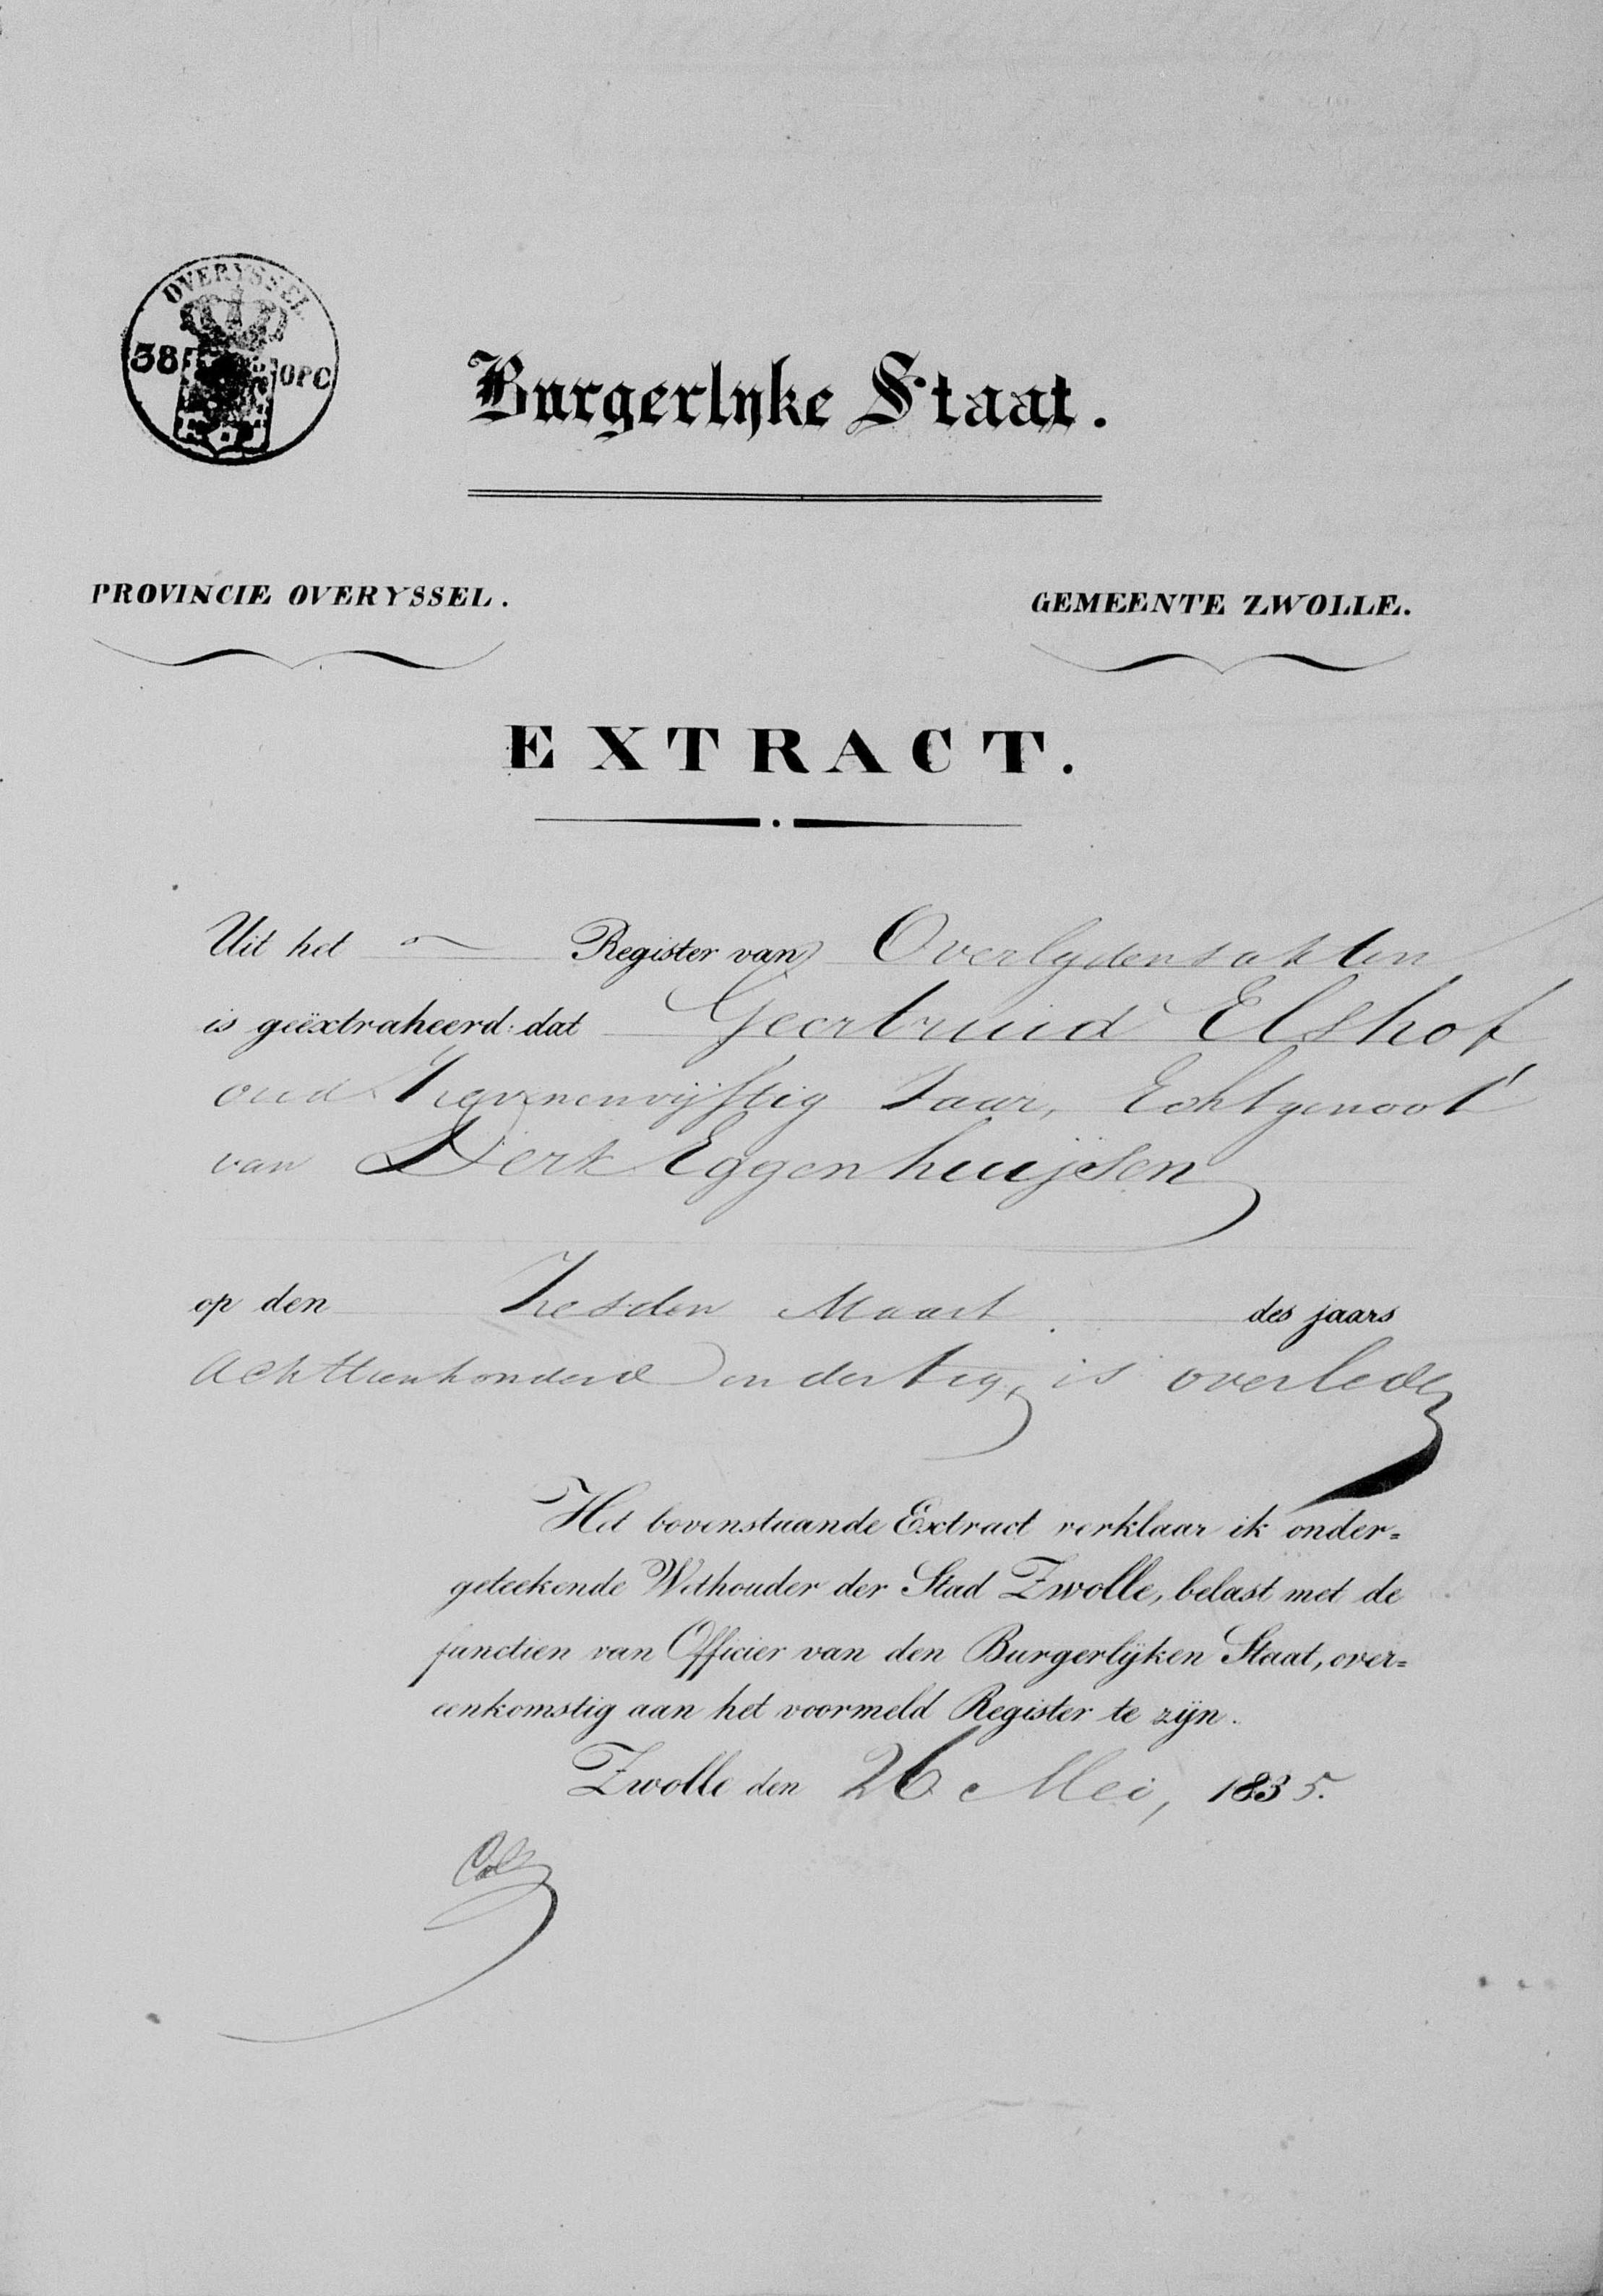 OVERYSSEL
38 OPC
Burgerlyke Staat.
PROVINCIE OVERYSSEL.
GEMEENTE ZWOLLE.
EXTRACT.
Uit het Register van Overlydensakten
is geëxtraheerd: dat Geertruid Elshof
oud Zevenenvijftig Jaar, Echtgenoot
van Derk Eggenhuijsen
op den Zesden Maart des jaars
Achttienhonderd en dertig, is overleden
Het bovenstaande Extract verklaar ik onder=
geteekende Wethouder der Stad Zwolle, belast met de
functien van Officier van den Burgerlijken Staat, over=
eenkomstig aan het voormeld Register te zijn.
Zwolle den 26 Mei, 1835.